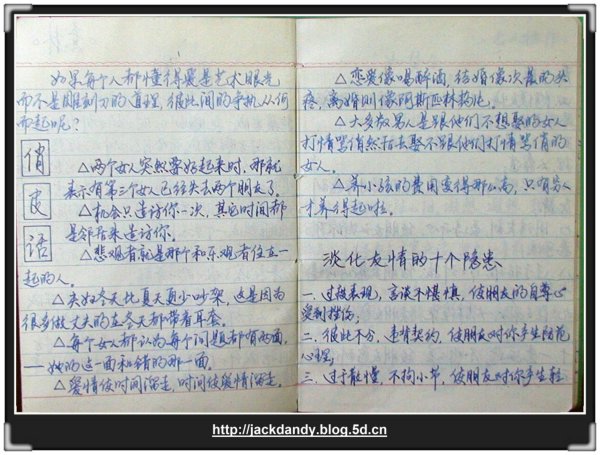 如果每个人都懂得爱是艺术眼光
而不是雕刻刀的道理，彼此间的争执从何
而起呢？
俏皮话
△两个女人突然要好起来时，那就
表示有第三个女人已经失去两个朋友了。
△机会只造访你一次，其它时间都
是邻居来造访你。
△悲观者就是那个和乐观者住在一
起的人。
△夫妇冬天比夏天更少吵架，这是因为
很多做丈夫的在冬天都带着耳套。
△每个女人都认为每个问题都有两面，
——她的这一面和错的那一面。
△爱情使时间溜走，时间使爱情溜走。
△恋爱像喝醉酒，结婚像次晨的头
疼，离婚则像阿斯匹林药片。
△大多数男人是跟他们不想娶的女人
打情骂俏然后去娶不跟他们打情骂俏的
女人。
△养小孩的费用变得那么高，只有穷人
才养得起啦。
淡化友情的十个隐患
一、过极表现，言谈不慎，使朋友的自尊心
受到挫伤；
二、彼此不分，违背契约，使朋友对你产生防范
心理；
三、过于散慢，不拘小节，使朋友对你产生轻
http://jackdandy.blog.5d.cn